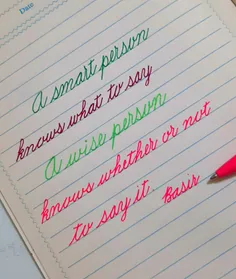 Date
a smart person
knows what to say
a wise person
knows whether or not
to say it.
Basir